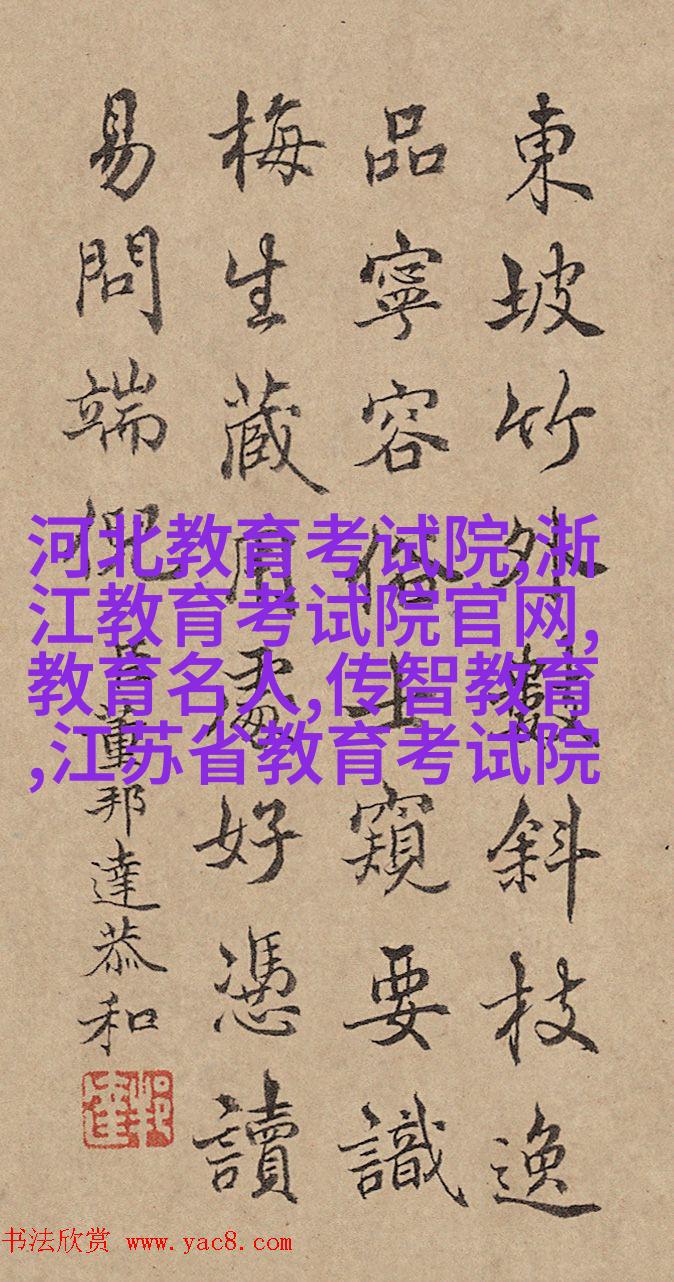 東坡竹外數斜枝逸
品寧容俗士窺要識
梅生藏用處好憑讀
易問端倪 臣董邦達恭和
河北教育考试院,浙
江教育考试院官网,
教育名人,传智教育
,江苏省教育考试院
书法欣赏 www.yac8.com